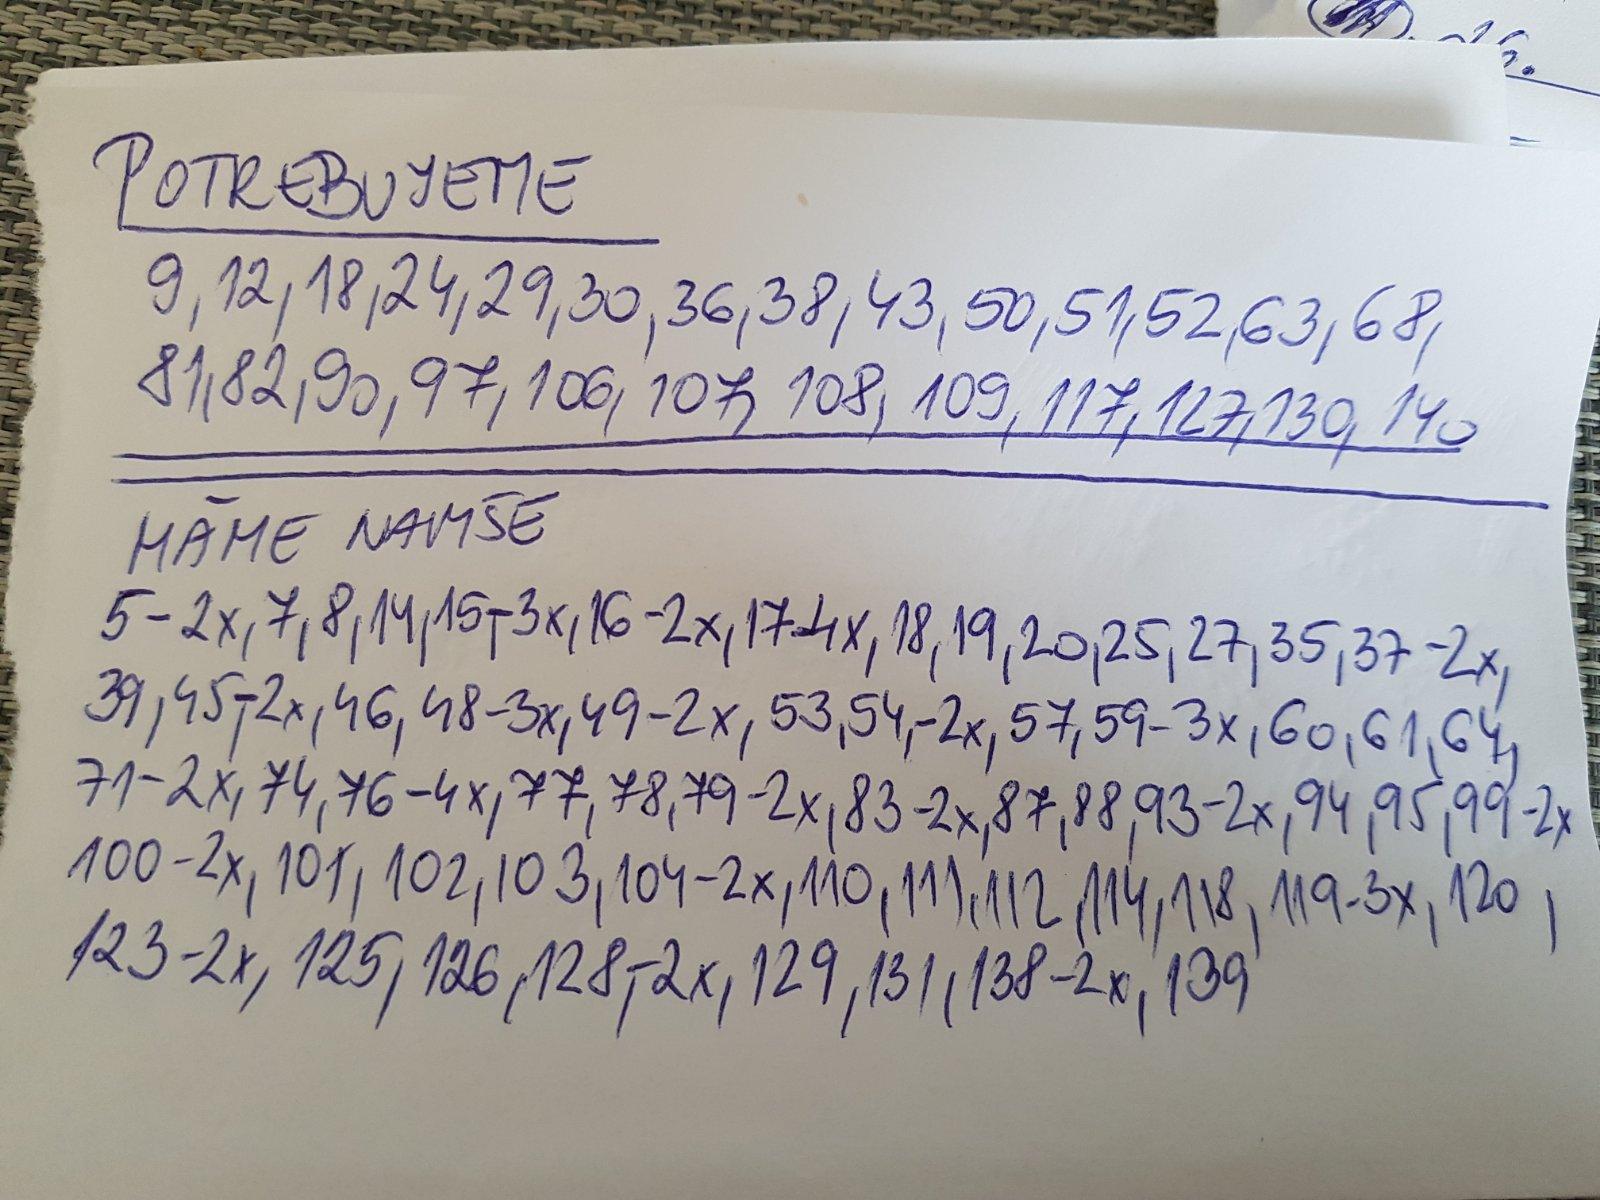 POTREBUJEME
9, 12, 18, 24, 29, 30, 36, 38, 43, 50, 51, 52, 63, 68,
81, 82, 90, 97, 106, 107, 108, 109, 117, 127, 130, 140
MÁME NAVIŠE
5-2x, 7, 8, 14, 15,-3x, 16-2x, 17-4x, 18, 19, 20, 25, 27, 35, 37-2x,
39, 45,-2x, 46, 48-3x, 49-2x, 53, 54,-2x, 57, 59-3x, 60, 61, 64,
71-2x, 74, 76-4x, 77, 78, 79-2x, 83-2x, 87, 88, 93-2x, 94, 95, 99-2x
100-2x, 101, 102, 103, 104-2x, 110, 111, 112, 114, 118, 119-3x, 120,
123-2x, 125, 126, 128,-2x, 129, 131, 138-2x, 139